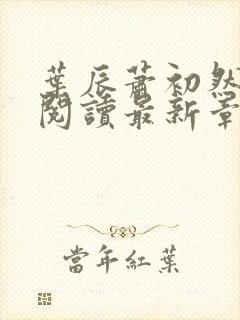 葉辰蕭初然
閱讀最新章
當年紅葉